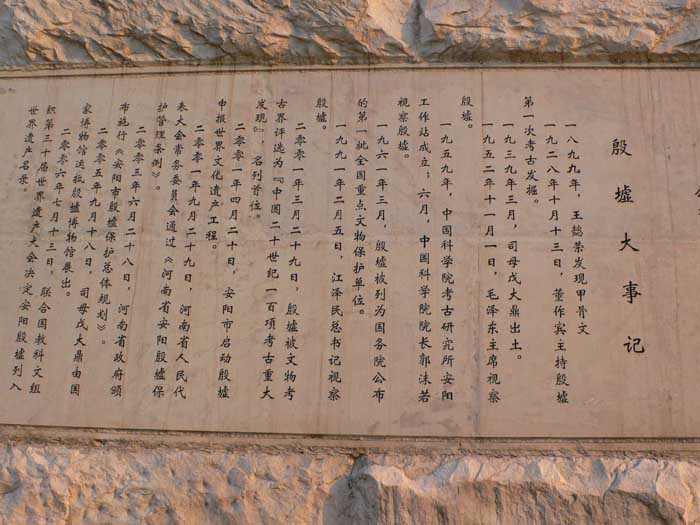 殷墟大事记
一八九九年，王懿荣发现甲骨文
一九二八年十月十三日，董作宾主持殷墟
第一次考古发掘。
一九三九年三月，司母戊大鼎出土。
一九五二年十一月一日，毛泽东主席视察
殷墟。
一九五九年，中国科学院考古研究所安阳
工作站成立；六月，中国科学院院长郭沫若
视察殷墟。
一九六一年三月，殷墟被列为国务院公布
的第一批全国重点文物保护单位。
一九九一年二月五日，江泽民总书记视察
殷墟。
二零零一年三月二十九日，殷墟被文物考
古界评选为『中国二十世纪一百项考古重大
发现』，名列首位。
二零零一年四月二十日，安阳市启动殷墟
申报世界文化遗产工程。
二零零一年九月二十九日，河南省人民代
表大会常务委员会通过《河南省安阳殷墟保
护管理条例》。
二零零三年六月二十八日，河南省政府颁
布施行《安阳市殷墟保护总体规划》。
二零零五年九月十八日，司母戊大鼎由国
家博物馆运抵殷墟博物馆展出。
二零零六年七月十三日，联合国教科文组
织第三十届世界遗产大会决定安阳殷墟列入
世界遗产名录。